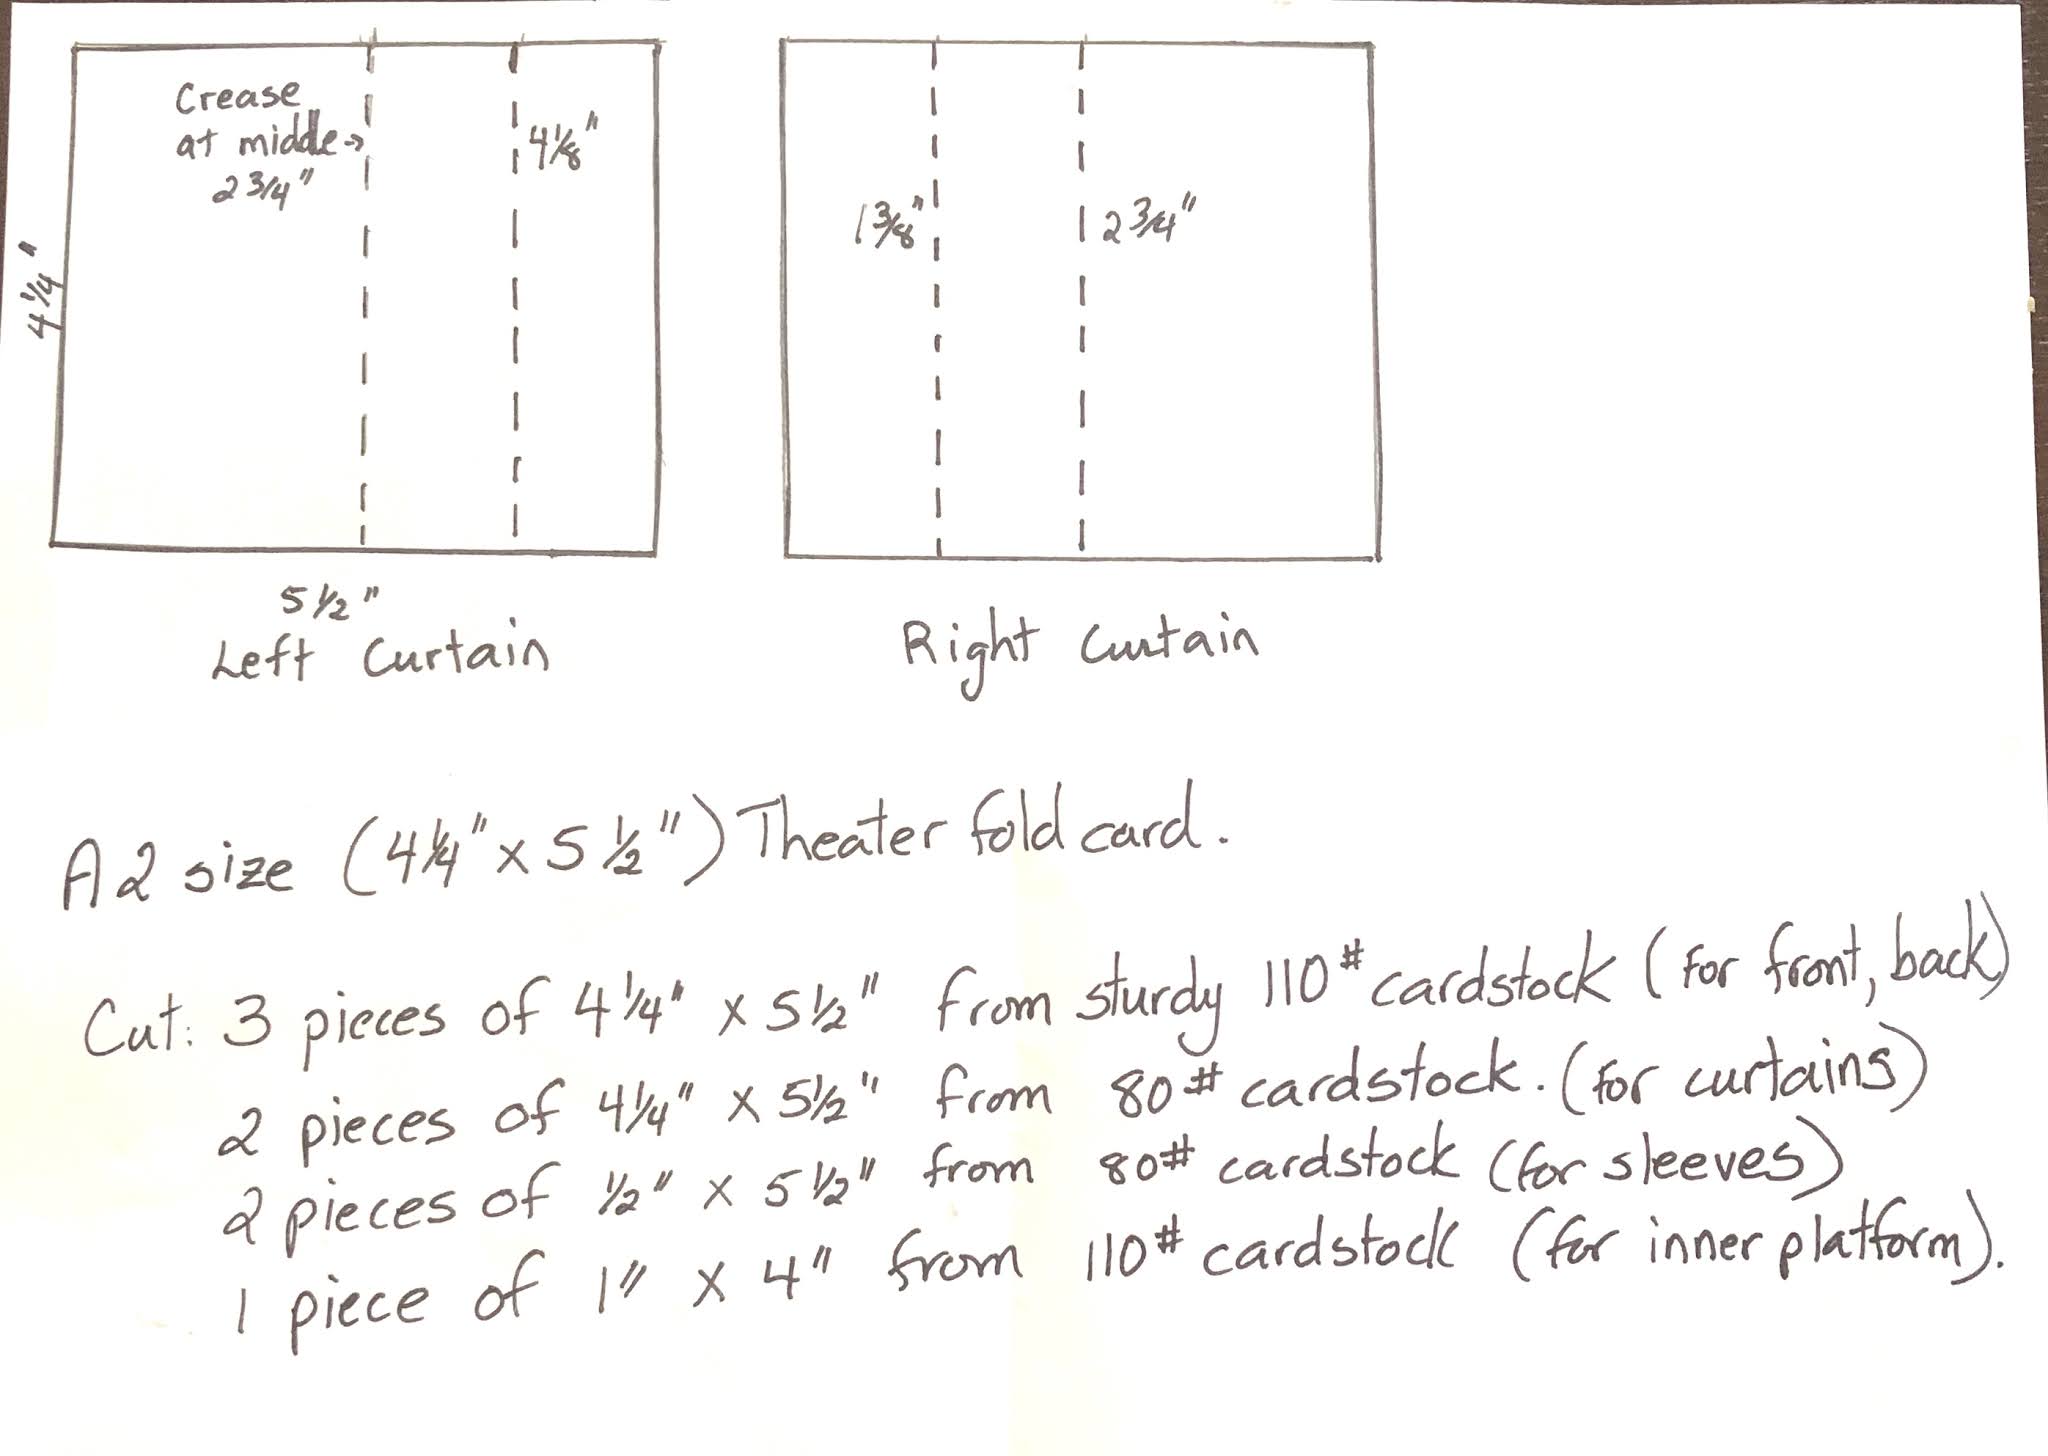 Crease
at middle→
2 3/4"
4 1/8"
4 1/4"
5 1/2"
Left Curtain
1 3/8"
2 3/4"
Right Curtain
A2 size (4 1/4" x 5 1/2") Theater fold card.
Cut: 3 pieces of 4 1/4" x 5 1/2" from sturdy 110# cardstock (for front, back)
2 pieces of 4 1/4" x 5 1/2" from 80# cardstock. (for curtains)
2 pieces of 1/2" x 5 1/2" from 80# cardstock (for sleeves)
1 piece of 1" x 4" from 110# cardstock (for inner platform).